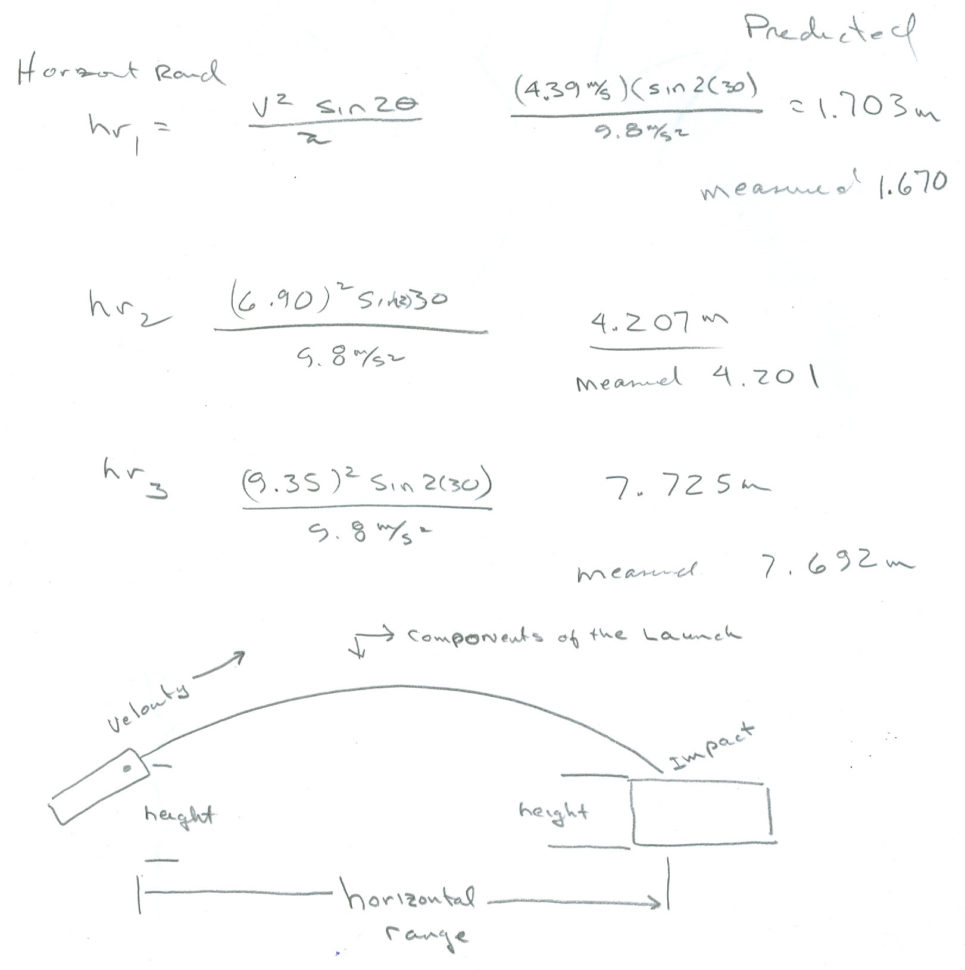 Predicted
Horzont Rand
hr₁ = V² sin 2θ / a (4.39 m/s)(sin 2(30) / 9.8 m/s² = 1.703 m
measured 1.670
hr₂ (6.90)² sin(2)30 / 9.8 m/s² 4.207 m
measured 4.201
hr₃ (9.35)² sin 2(30) / 9.8 m/s² 7.725 m
measured 7.692 m
components of the Launch
velocity
Impact
height height
horizontal
range